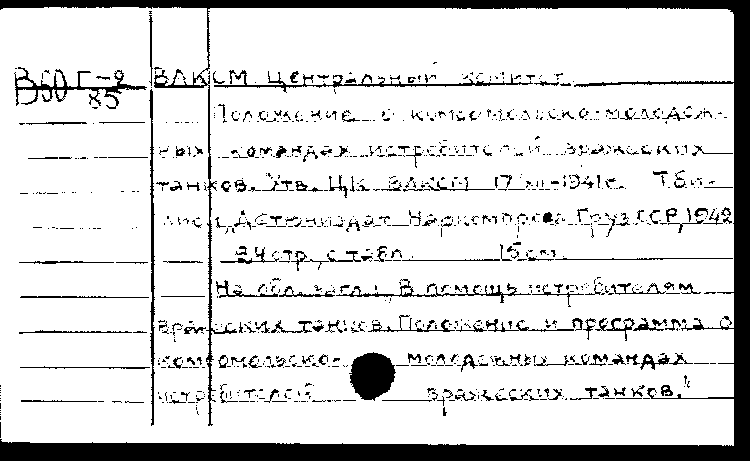 В60 Г-2 ВЛКСМ. Центральный комитет.
В60 85
Положение о комсомольско-молодеж-
ных командах истребителей вражеских
танков. Утв. ЦК ВЛКСМ 17/XII-1941г. Тби-
лиси, Детюниздат Наркомпроса Груз ССР, 1942
24 стр., с табл. 15 см.
На обл. загл.: „В помощь истребителям
вражеских танков. Положение и программа о
комсомольско- молодежных командах
истребителей вражеских танков."